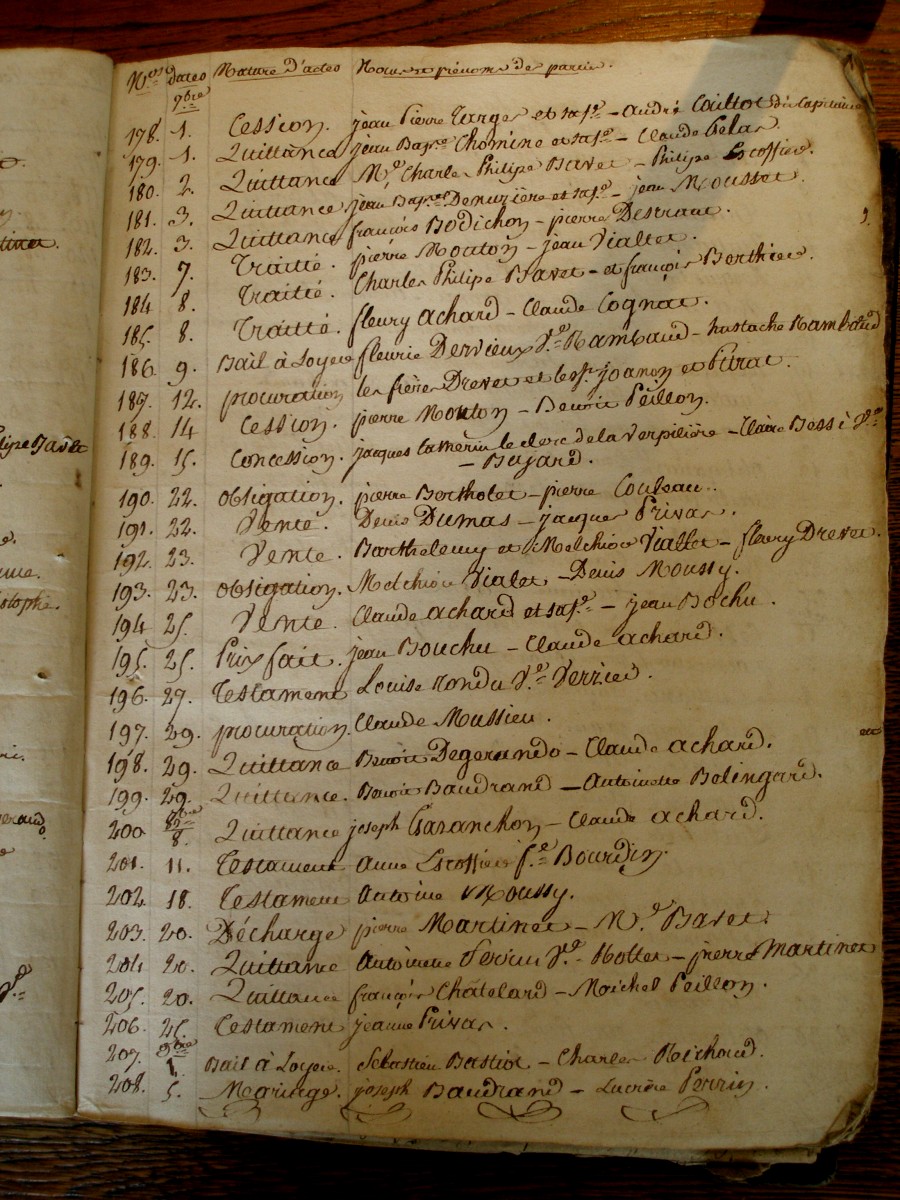 N.os dates Nature d'actes Noms et prénoms de parties.
7bre
178. 1. Cession. jean Pierre Targes et sa f.e – André Caillot dit Capitaine
179. 1. Quittance jean Bap.te Chomine et sa f.e – Claude Gelas.
180. 2. Quittance M.e Charles Philipe Bavet – Philipe Escoffier.
181. 3. Quittance jean Bap.te Denuzière et sa f.e – jean Mousset.
182. 3. Quittance françois Bodichon – pierre Destraut.
183. 7. Traitté. pierre Mouton – jean Viallet.
184 8. Traitté. Charles Philipe Bavet – et françois Berthier.
185. 8. Traitté. fleury Achard – Claude Cognat.
186. 9. Bail à Loyer fleurie Dervieux V.e Rambaud – Eustache Rambaud
187. 12. procuration les frères Drevet et les s.rs Joanon et Pitrat.
188. 14 Cession. pierre Mouton – Benoit Peillon.
189. 15. Concession. jacques Camerin le clerc de la Verpilière – Claire Besse V.ve
– Bajard.
190. 22. obligation. pierre Bertholet – pierre Coubeau.
191. 22. Vente. Denis Dumas – jacques Privas.
192. 23. Vente. Barthelemy et Melchior Viallet – fleury Drevet.
193. 23. obligation. Melchior Vialet – Denis Moussy.
194 25. Vente. Claude achard et sa f.e – jean Bochu.
195. 25. Prix fait. jean Bouchu – Claude achard.
196. 27. Testament Louise Rondu V.e Verrier.
197. 29. procuration. Claude Mussieu.
198. 29. Quittance Benoit Degerando – Claude achard.
199. 29. Quittance. Benoit Baudrand – Antoinette Bolingard.
8bre
200 8. Quittance joseph Garanchon – Claude achard.
201. 11. Testament anne Escoffier f.e Bourdin.
202. 18. Testament Antoine Moussy.
203. 20. Décharge pierre Martinet – M.e Bavet.
204 20. Quittance Antoinette Perrin V.e Rollet – pierre Martinet
205. 20. Quittance françois Chatelard – Michel Peillon.
206. 25. Testament jeanne Privas.
9bre
207. 1. Bail à Loyer. Sébastien Bastiot – Charles Richoud.
208. 5. Mariage. joseph Baudrand – Lucrèce Perrin.